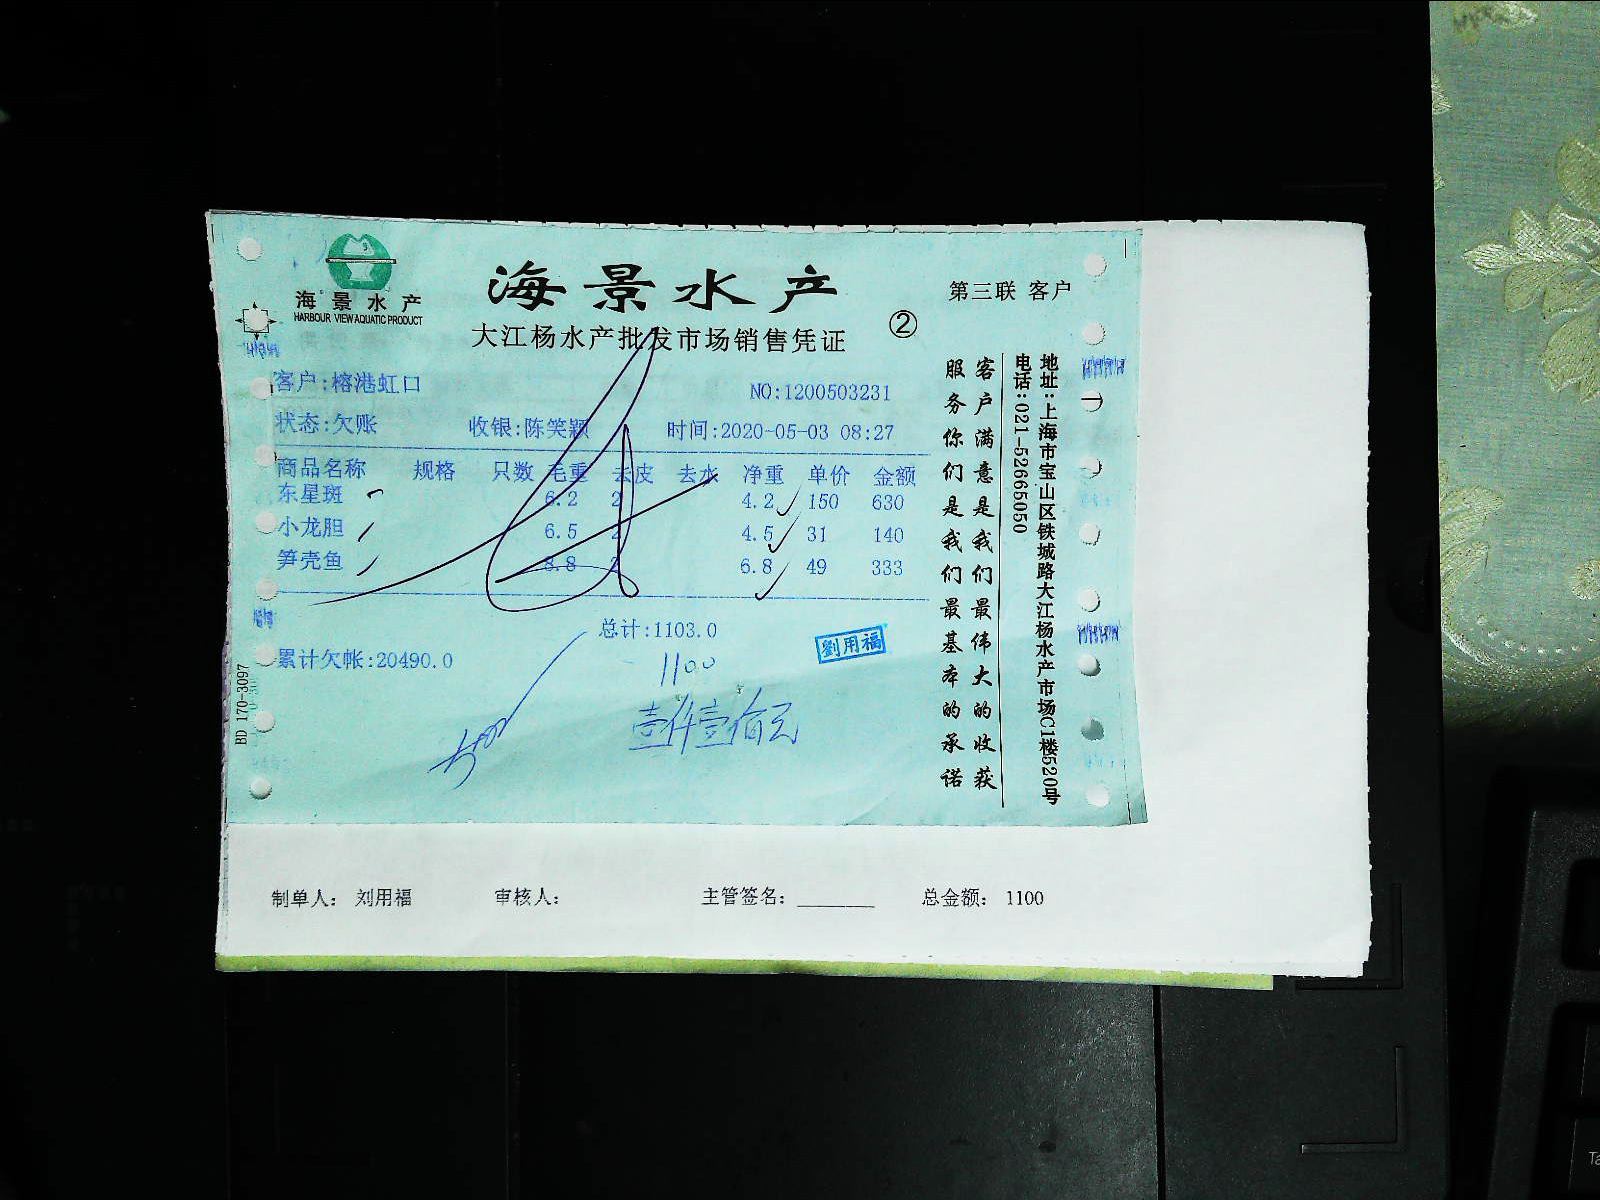 海景水产
HARBOUR VIEW AQUATIC PRODUCT
海景水产
大江杨水产批发市场销售凭证
②
第三联 客户
客户:榕港虹口
NO:1200503231
状态:欠账 收银:陈笑颖 时间:2020-05-03 08:27
商品名称 规格 只数 毛重 去皮 去水 净重 单价 金额
东星斑 6.2 2 4.2 150 630
小龙胆 6.5 2 4.5 31 140
笋壳鱼 8.8 2 6.8 49 333
总计:1103.0
累计欠帐:20490.0
1100
壹仟壹佰元
劉用福
客户满意是我们最伟大的收获
服务你们是我们最基本的承诺
地址:上海市宝山区铁城路大江杨水产市场C1楼520号
电话:021-52665050
BD 170-3097
制单人: 刘用福 审核人: 主管签名: 总金额: 1100